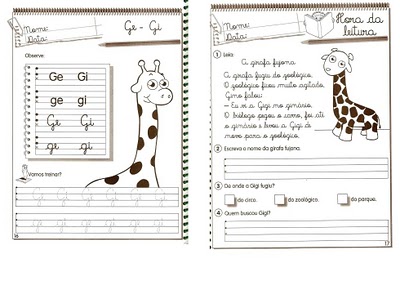 Nome:
Data:
Ge - Gi
Observe:
Ge Gi
ge gi
Ge Gi
ge gi
Vamos treinar?
Gi Gi Gi Gi Gi Gi
gi gi gi gi gi gi
16
Nome:
Data:
Hora da
leitura
1 Leia:
A girafa fujona
A girafa fugiu do zoológico.
O zoológico ficou muito agitado.
Gino falou:
– Eu vi a Gigi no ginásio.
O biólogo pegou o carro, foi até
o ginásio e levou a Gigi de
novo para o zoológico.
2 Escreva o nome da girafa fujona.
3 De onde a Gigi fugiu?
do circo. do zoológico. do parque.
4 Quem buscou Gigi?
17